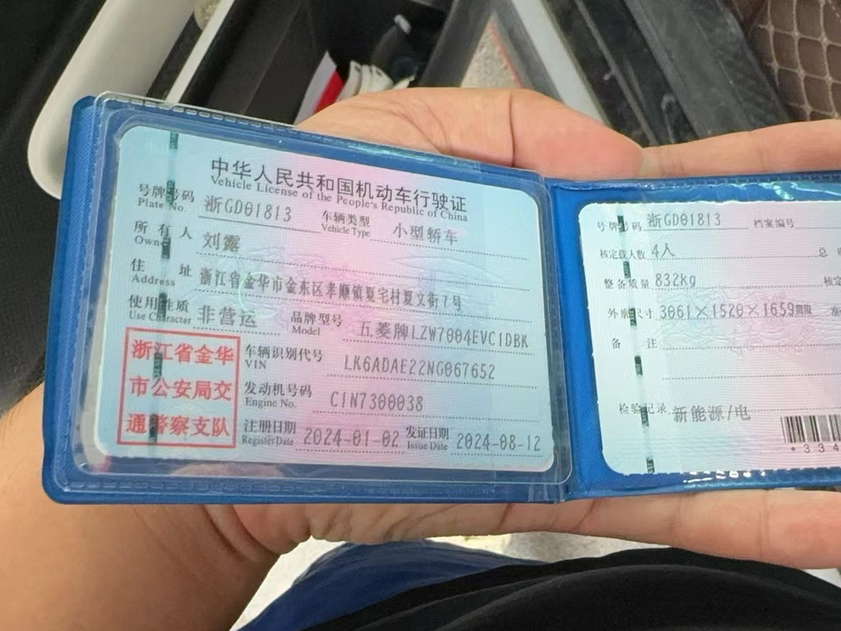 中华人民共和国机动车行驶证
Vehicle License of the People's Republic of China
号牌号码 浙GD01813 车辆类型 小型轿车
Plate No. Vehicle Type
所有人 刘露
Owner
住址 浙江省金华市金东区孝顺镇夏宅村夏文街7号
Address
使用性质 非营运 品牌型号 五菱牌LZW7004EVC1DBK
Use Character Model
浙江省金华
市公安局交
通警察支队
车辆识别代号 LK6ADAE22NG067652
VIN
发动机号码 C1N7300038
Engine No.
注册日期 2024-01-02 发证日期 2024-08-12
Register Date Issue Date
号牌号码 浙GD01813 档案编号
核定载人数 4人 总
整备质量 832kg 核定
外廓尺寸 3061×1520×1659mm
备注
检验记录 新能源/电
*334